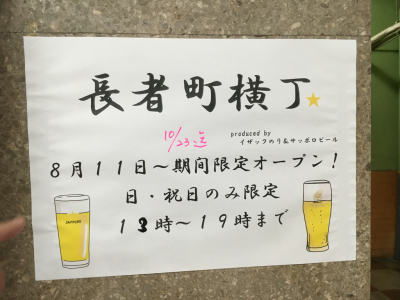 長者町横丁
10/23迄
produced by
イザックのり&サッポロビール
8月11日～期間限定オープン！
日・祝日のみ限定
13時～19時まで
SAPPORO